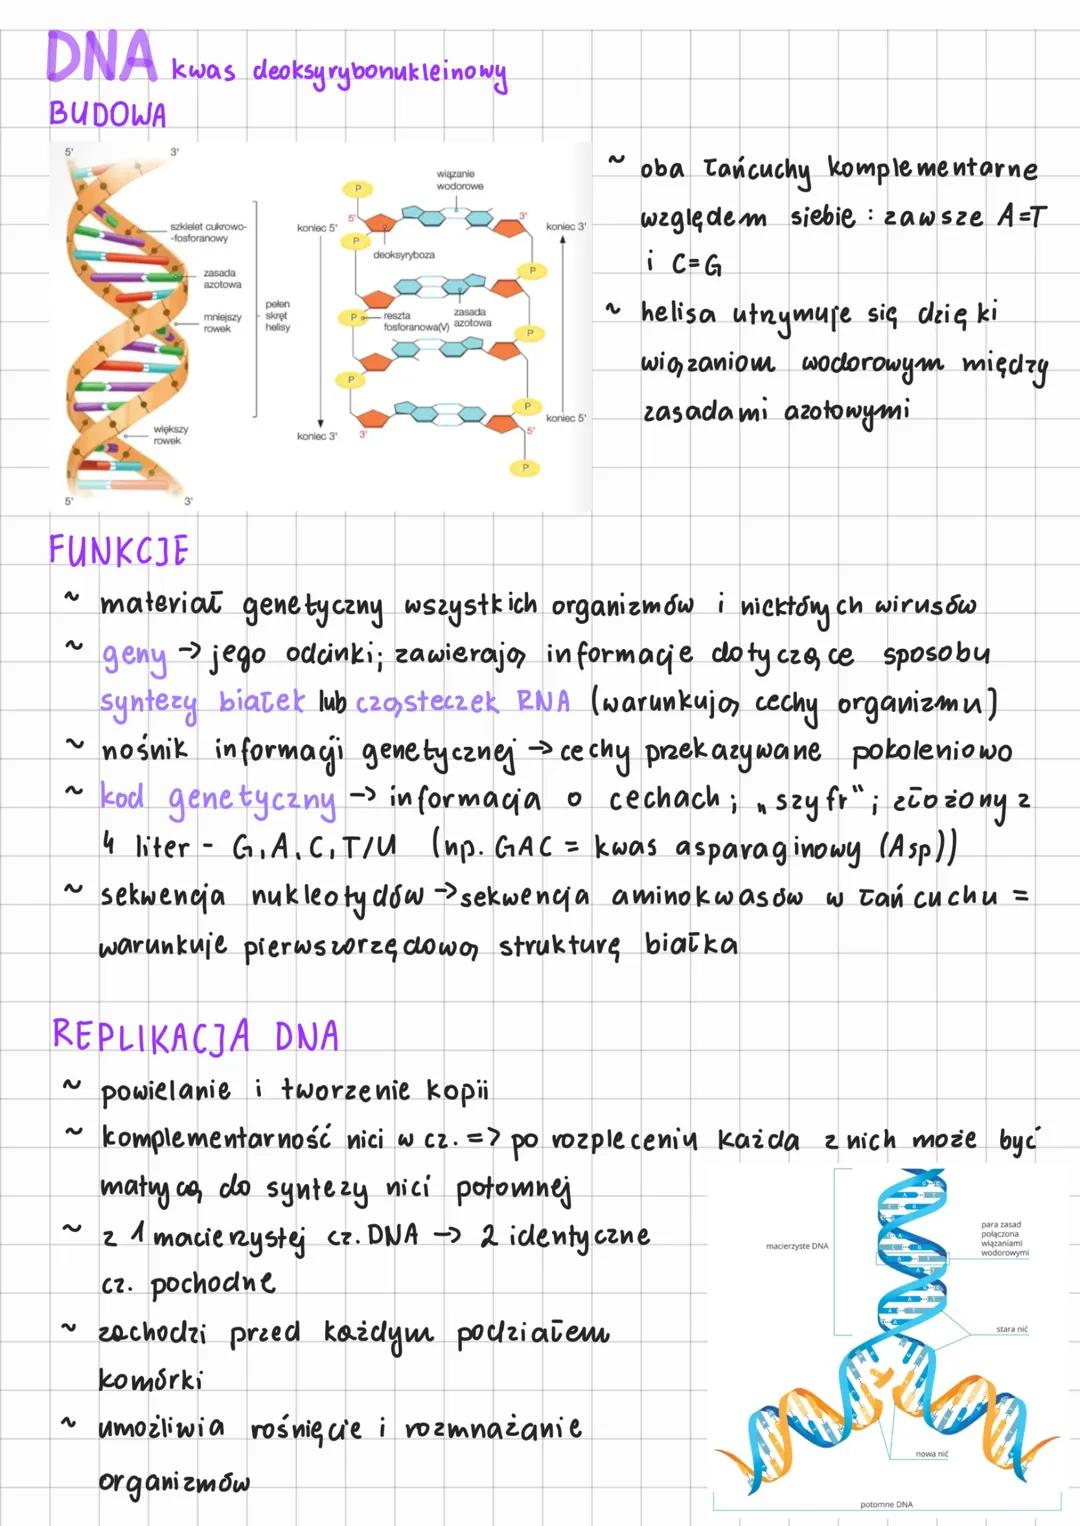 DNA kwas deoksyrybonukleinowy
BUDOWA
5'
3'
szkielet cukrowo-
-fosforanowy
zasada
azotowa
mniejszy
rowek
pełen
skręt
helisy
większy
rowek
5'
3'
wiązanie
wodorowe
P
5'
3'
koniec 5'
koniec 3'
P
deoksyryboza
P
P
reszta
fosforanowa(V)
zasada
azotowa
P
P
P
koniec 5'
koniec 3'
3'
5'
P
~ oba łańcuchy komplementarne
względem siebie : zawsze A=T
i C=G
~ helisa utrzymuje się dzięki
wiązaniom wodorowym między
zasadami azotowymi
FUNKCJE
~ materiał genetyczny wszystkich organizmów i niektórych wirusów
~ geny → jego odcinki; zawierają informacje dotyczące sposobu
syntezy białek lub cząsteczek RNA (warunkują cechy organizmu)
~ nośnik informacji genetycznej → cechy przekazywane pokoleniowo
~ kod genetyczny → informacja o cechach; „szyfr"; złożony z
4 liter - G, A, C, T/U (np. GAC = kwas asparaginowy (Asp))
~ sekwencja nukleotydów → sekwencja aminokwasów w łańcuchu =
warunkuje pierwszorzędową strukturę białka
REPLIKACJA DNA
~ powielanie i tworzenie kopii
~ komplementarność nici w cz. => po rozpleceniu każda z nich może być
matrycą do syntezy nici potomnej
~ z 1 macierzystej cz. DNA → 2 identyczne
cz. pochodne
~ zachodzi przed każdym podziałem
komórki
~ umożliwia rośnięcie i rozmnażanie
organizmów
macierzyste DNA
para zasad
połączona
wiązaniami
wodorowymi
stara nić
nowa nić
potomne DNA